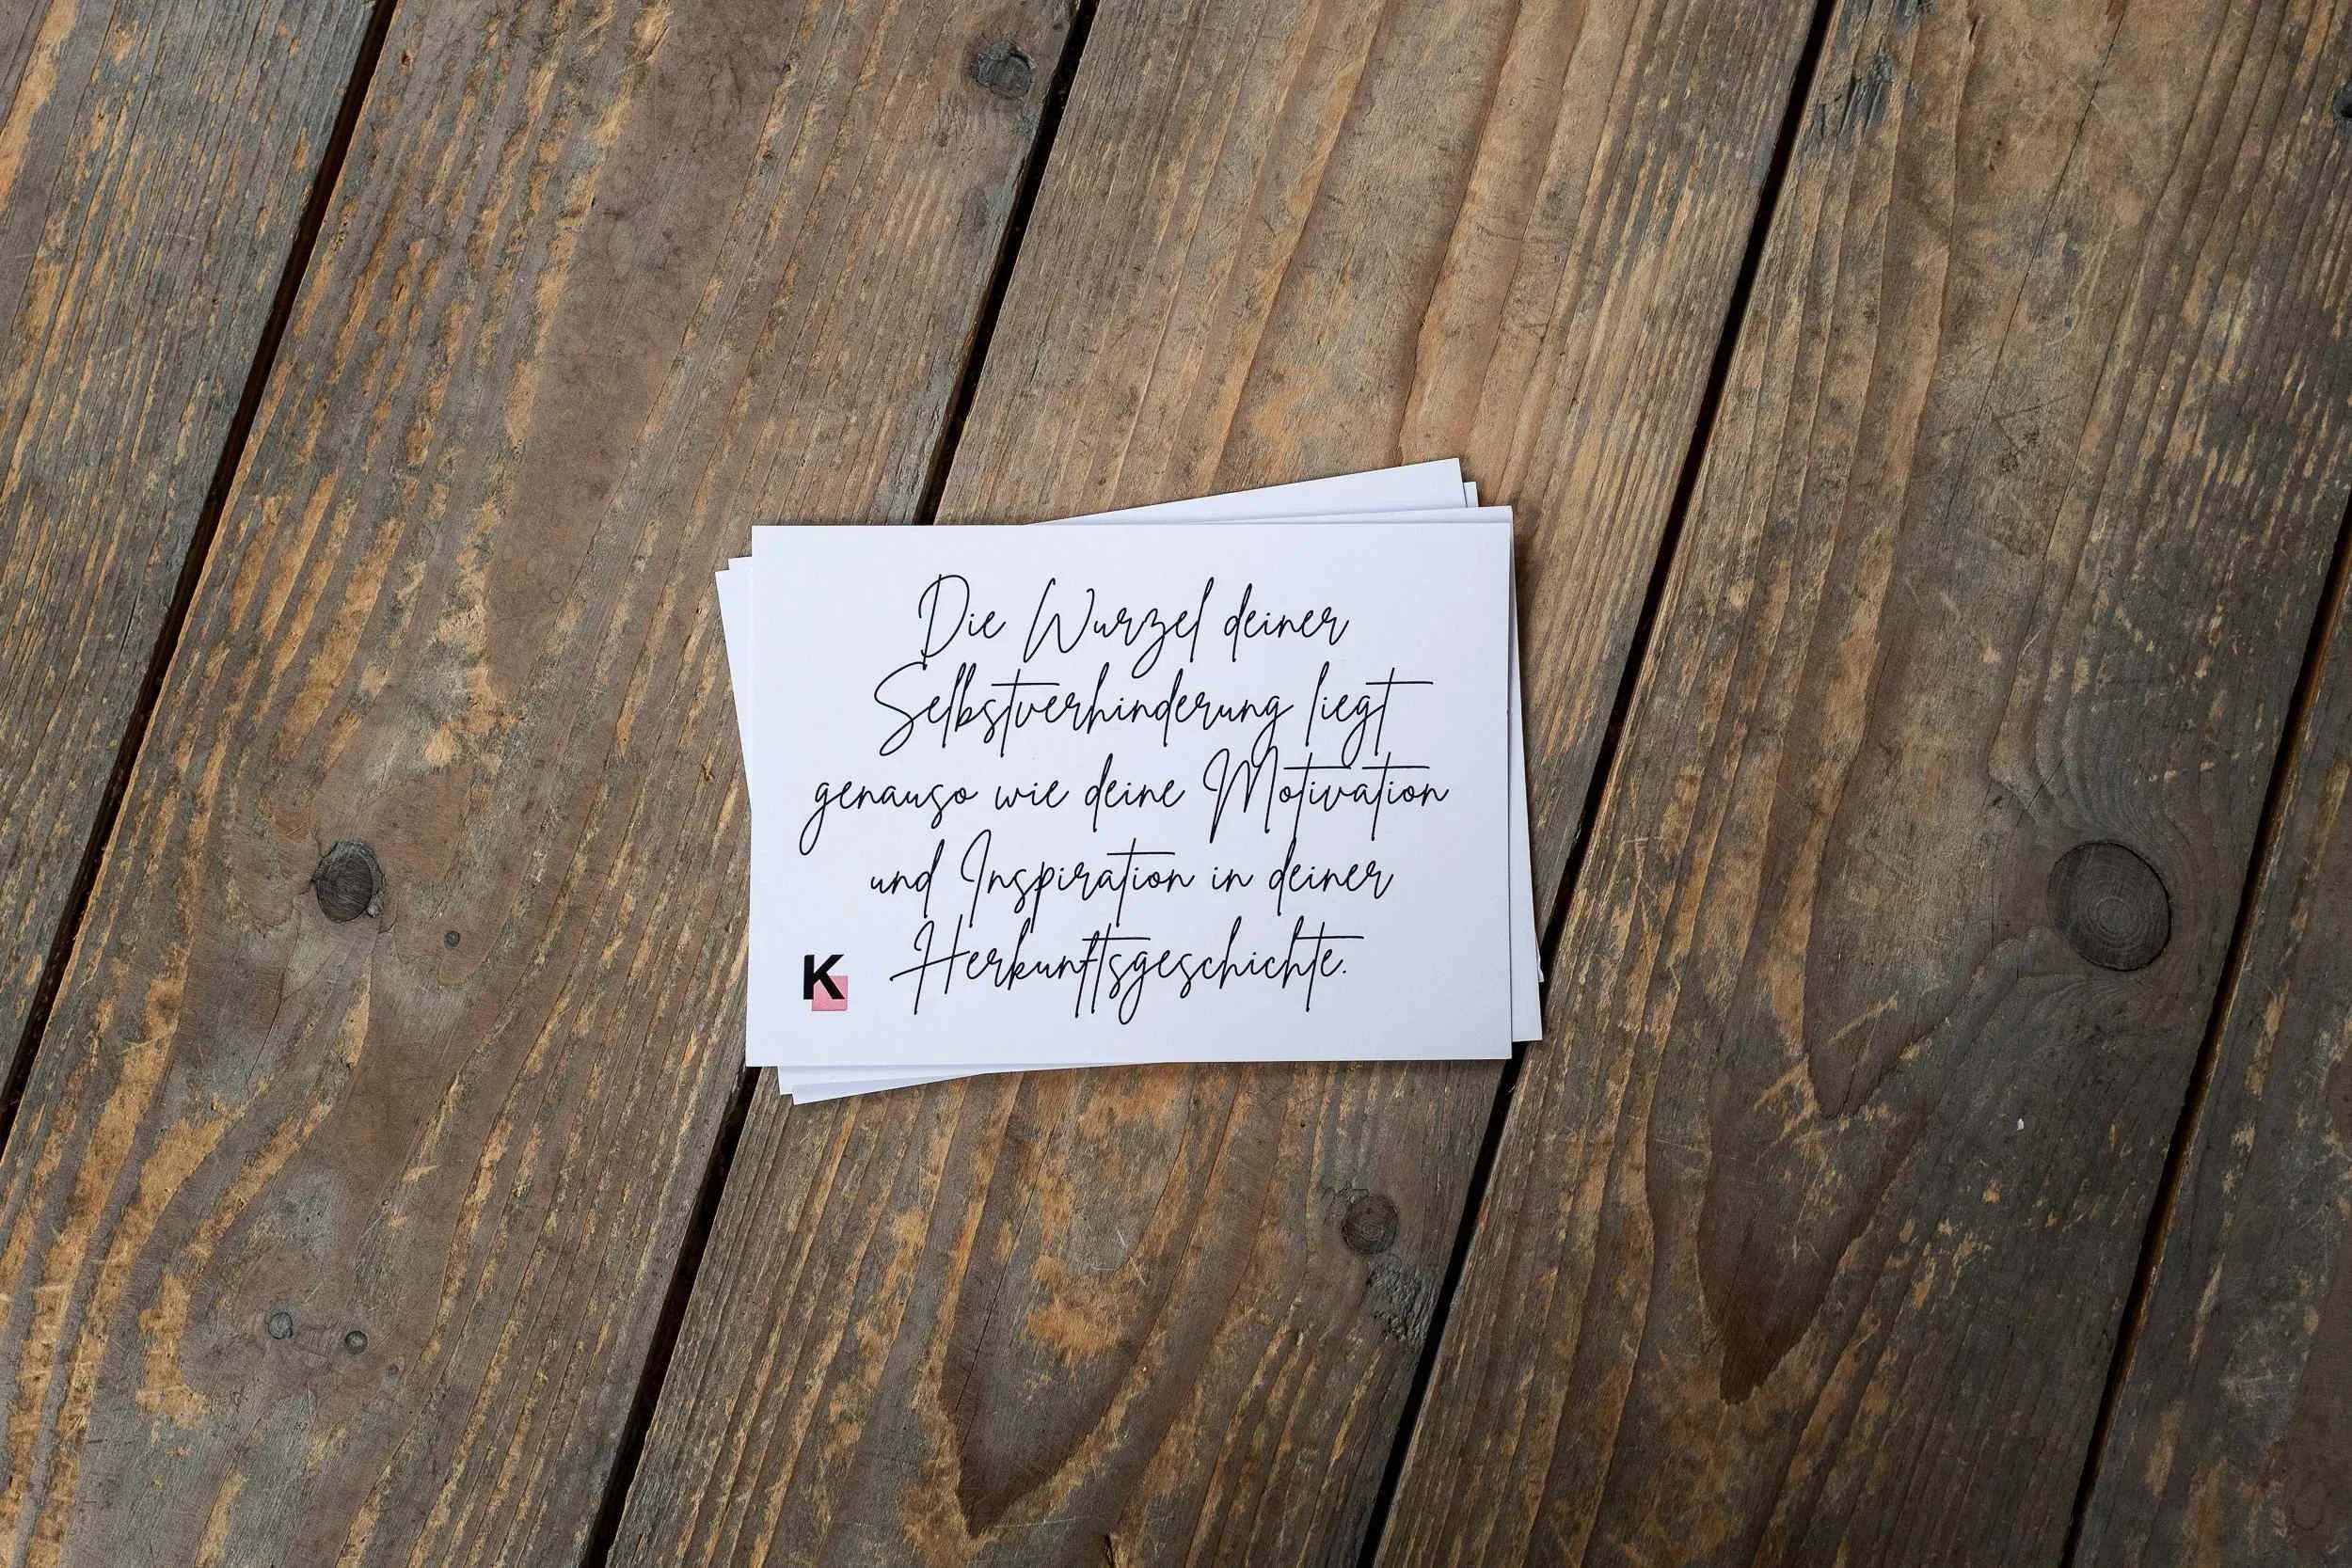 Die Wurzel deiner
Selbstverhinderung liegt
genauso wie deine Motivation
und Inspiration in deiner
Herkunftsgeschichte.
K